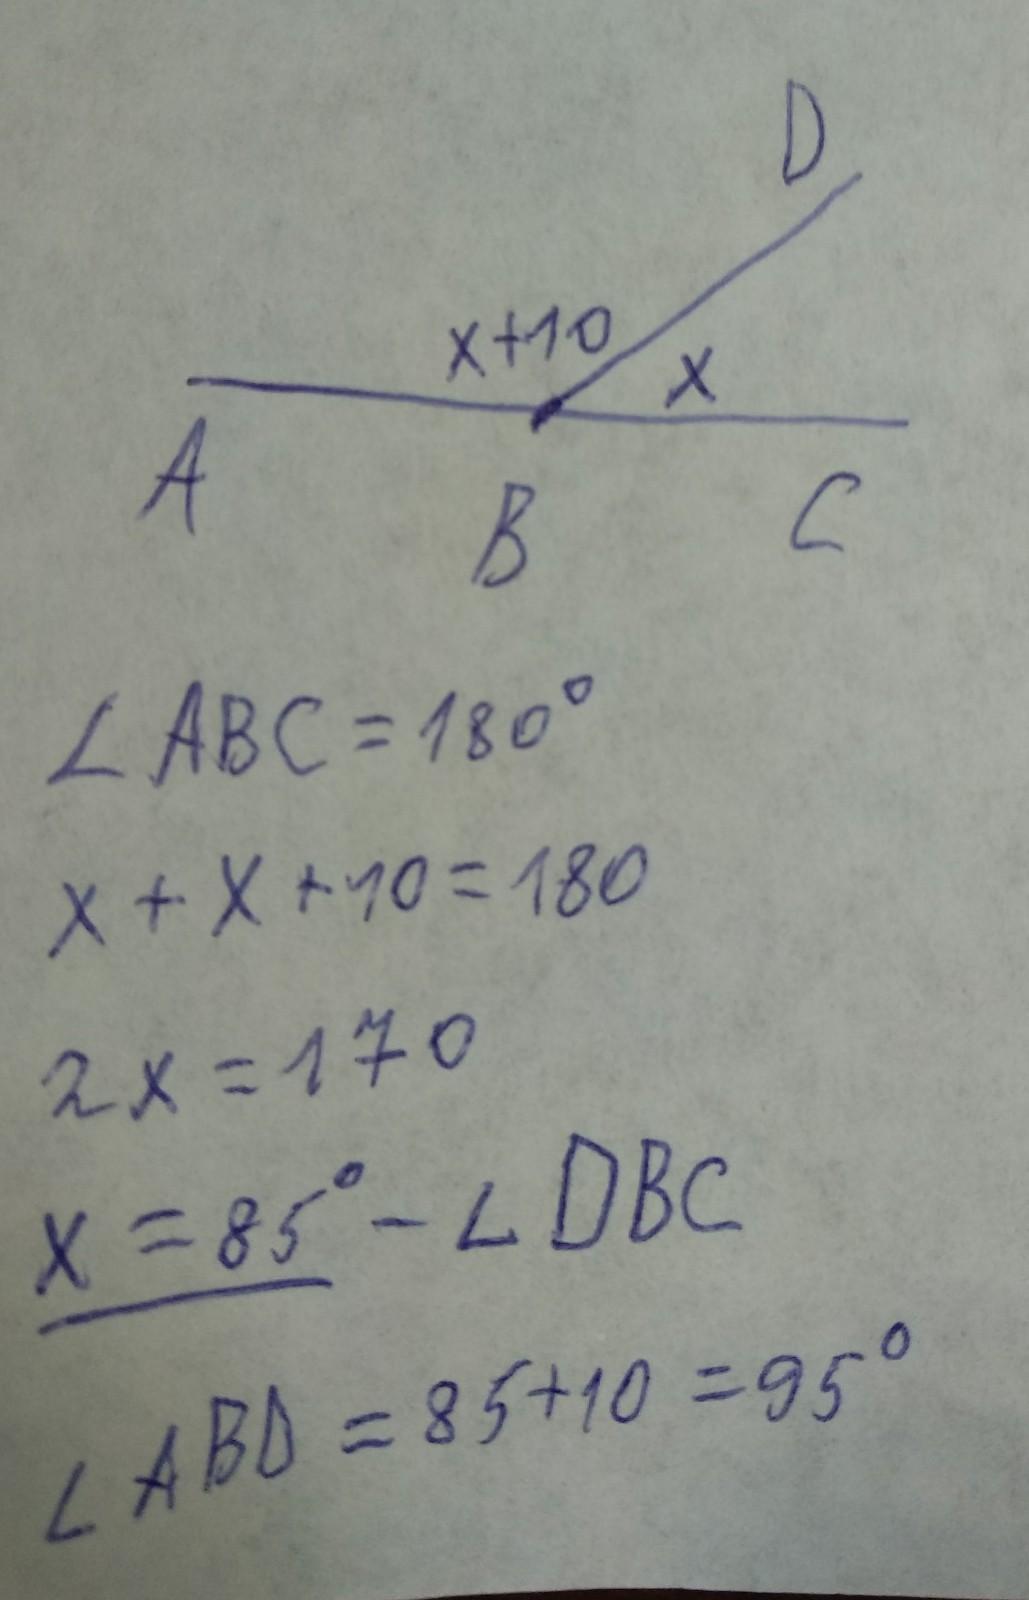 D
x+10
x
A
B
C
∠ABC=180°
x+x+10=180
2x=170
x=85°-∠DBC
∠ABD=85+10=95°